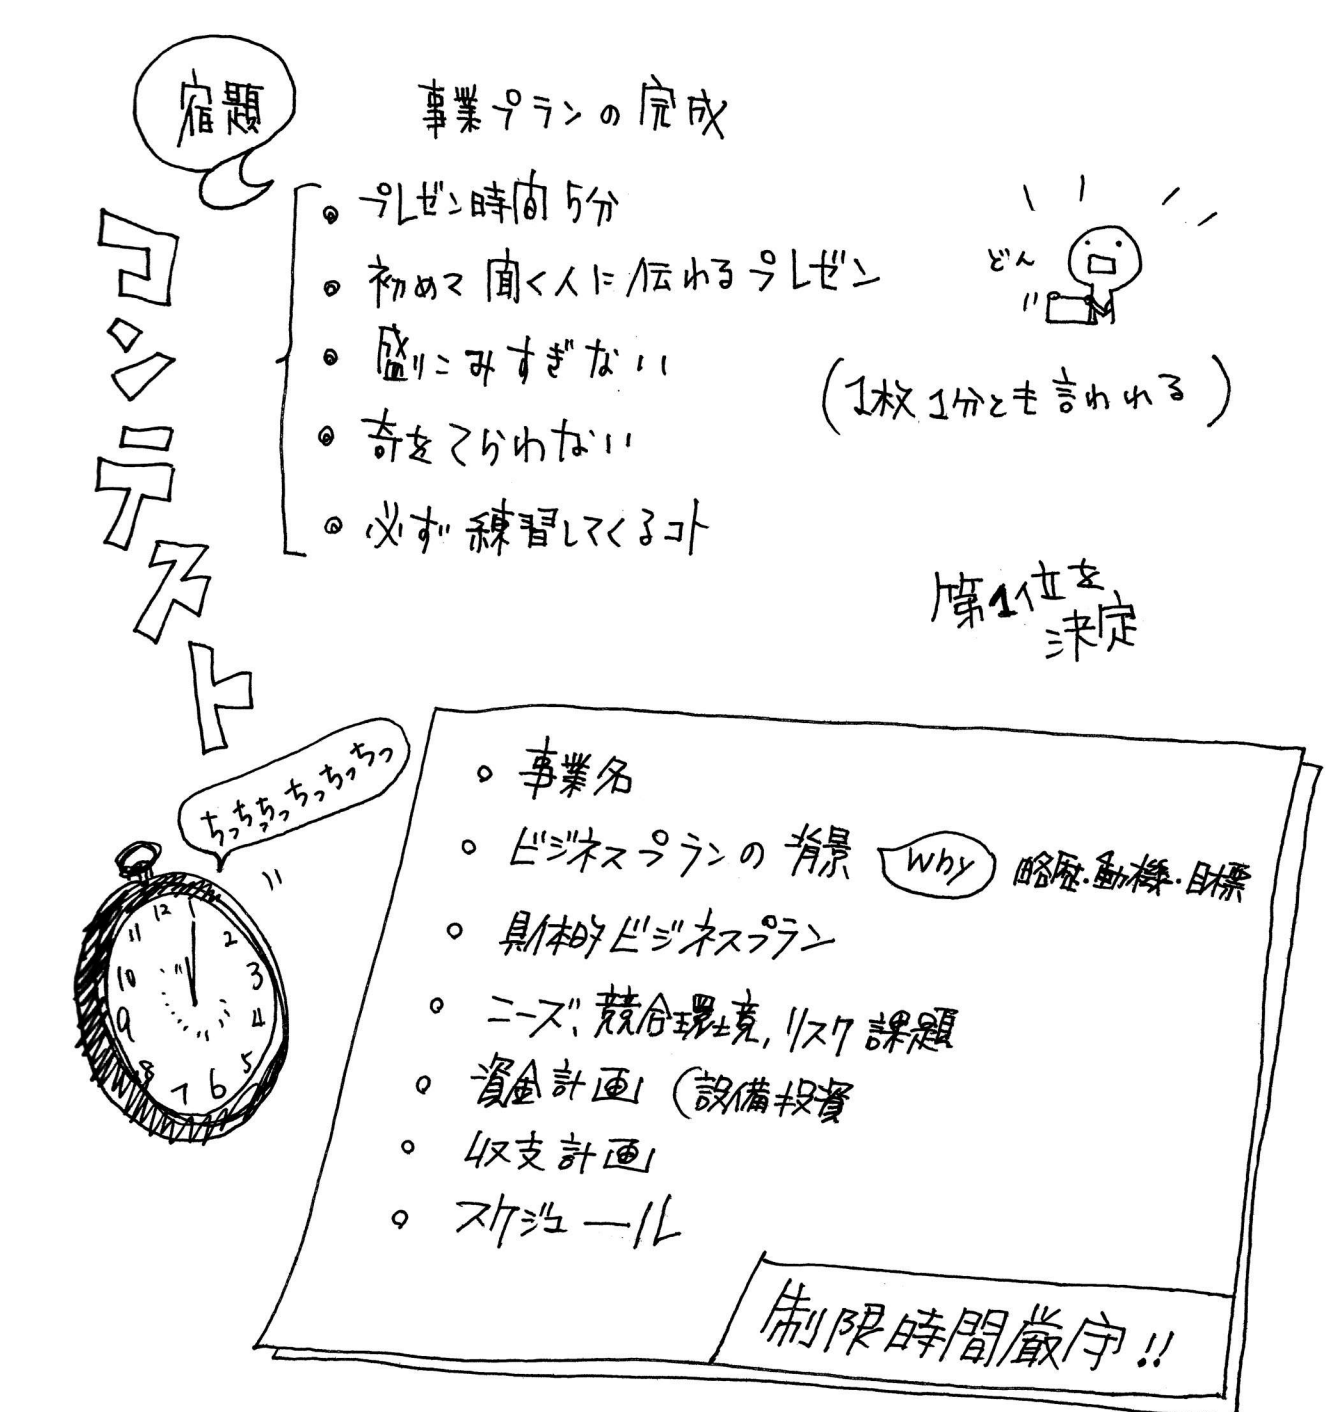 宿題
事業プランの完成
コンテスト
・プレゼン時間5分
・初めて聞く人に伝わるプレゼン
・盛りこみすぎない
・奇をてらわない
・必ず練習してくるコト
どん
(1枚1分とも言われる)
第1位を
決定
ちっちっちっちっちっちっ
12 1 2 3 4 5 6 7 8 9 10 11
・事業名
・ビジネスプランの背景 Why 略歴・動機・目標
・具体的ビジネスプラン
・ニーズ、競合環境,リスク課題
・資金計画(設備投資
・収支計画
・スケジュール
制限時間厳守!!